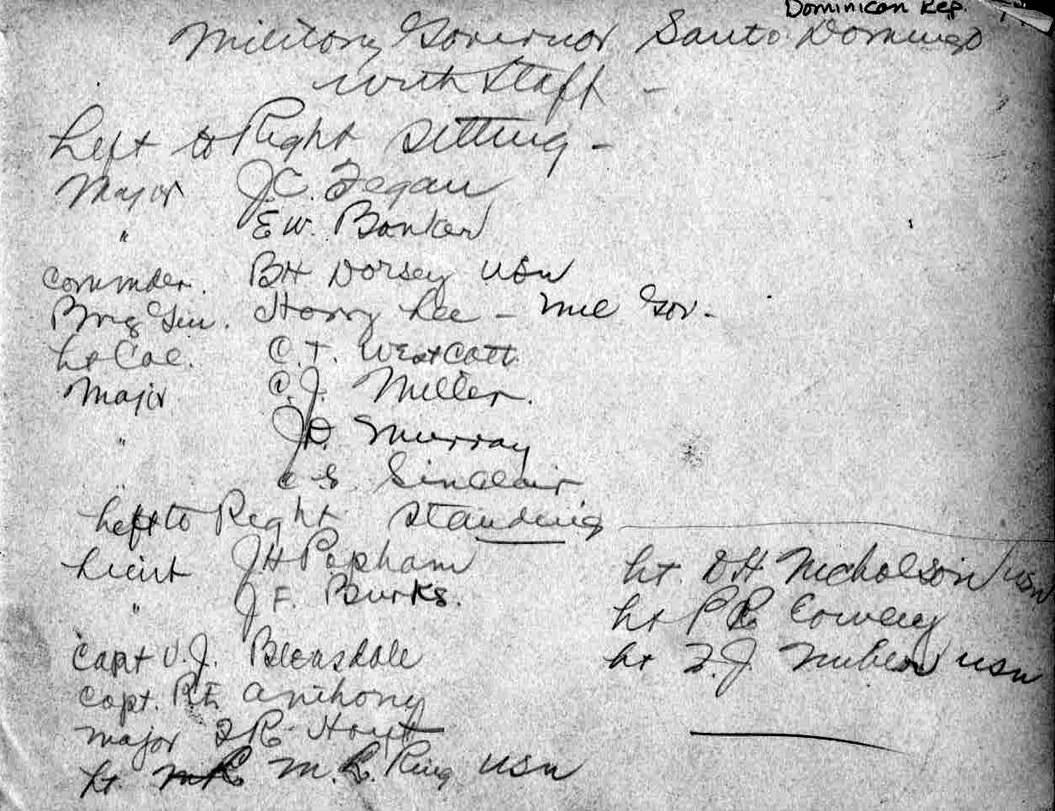 Dominican Rep.
Military Governor Santo Domingo
with Staff -
Left to Right Sitting -
Major J.C. Fegan
" E W. Banker
Commder. BH Dorsey USN
Brig Gen. Harry Lee - Mil Gov.
Lt Col. C. T. Westcott
Major C. J. Miller.
" J.D. Murray
C S. Sinclair
Left to Right Standing
Lieut J H Popham
" J F. Burks.
Capt V. J. Bleasdale
Capt. R E Anthony
Major F R Hoyt
Lt. M. R. King USN
Lt. D H Nicholson USN
Lt P R
Lt F. J. USN